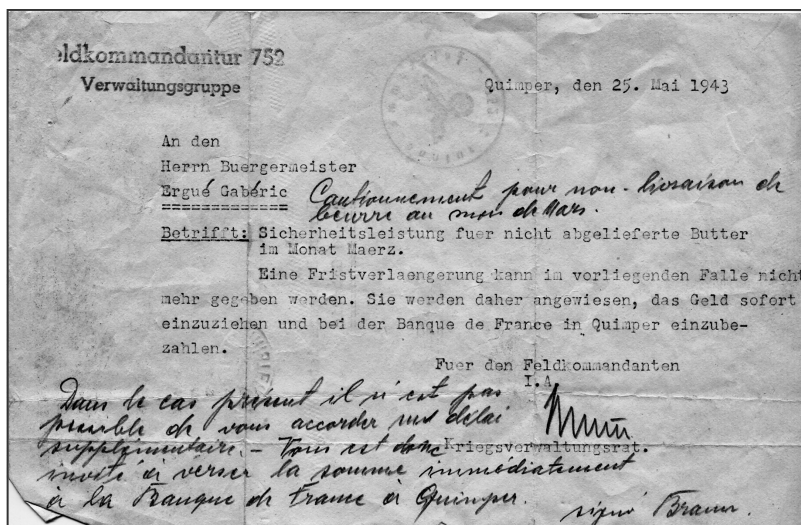 eldkommandantur 752
Verwaltungsgruppe
Quimper, den 25. Mai 1943
An den
Herrn Buergermeister
Ergué Gabéric
Cautionnement pour non-livraison de
beurre au mois de Mars.
Betrifft: Sicherheitsleistung fuer nicht abgelieferte Butter
im Monat Maerz.
Eine Fristverlaengerung kann im vorliegenden Falle nicht
mehr gegeben werden. Sie werden daher angewiesen, das Geld sofort
einzuziehen und bei der Banque de France in Quimper einzube-
zahlen.
Fuer den Feldkommandanten
I.A.
Kriegsverwaltungsrat.
Dans le cas présent il n'est pas
possible de vous accorder un délai
supplémentaire. - Vous est donc
invité à verser la somme immédiatement
à la Banque de France à Quimper.
signé Braun.